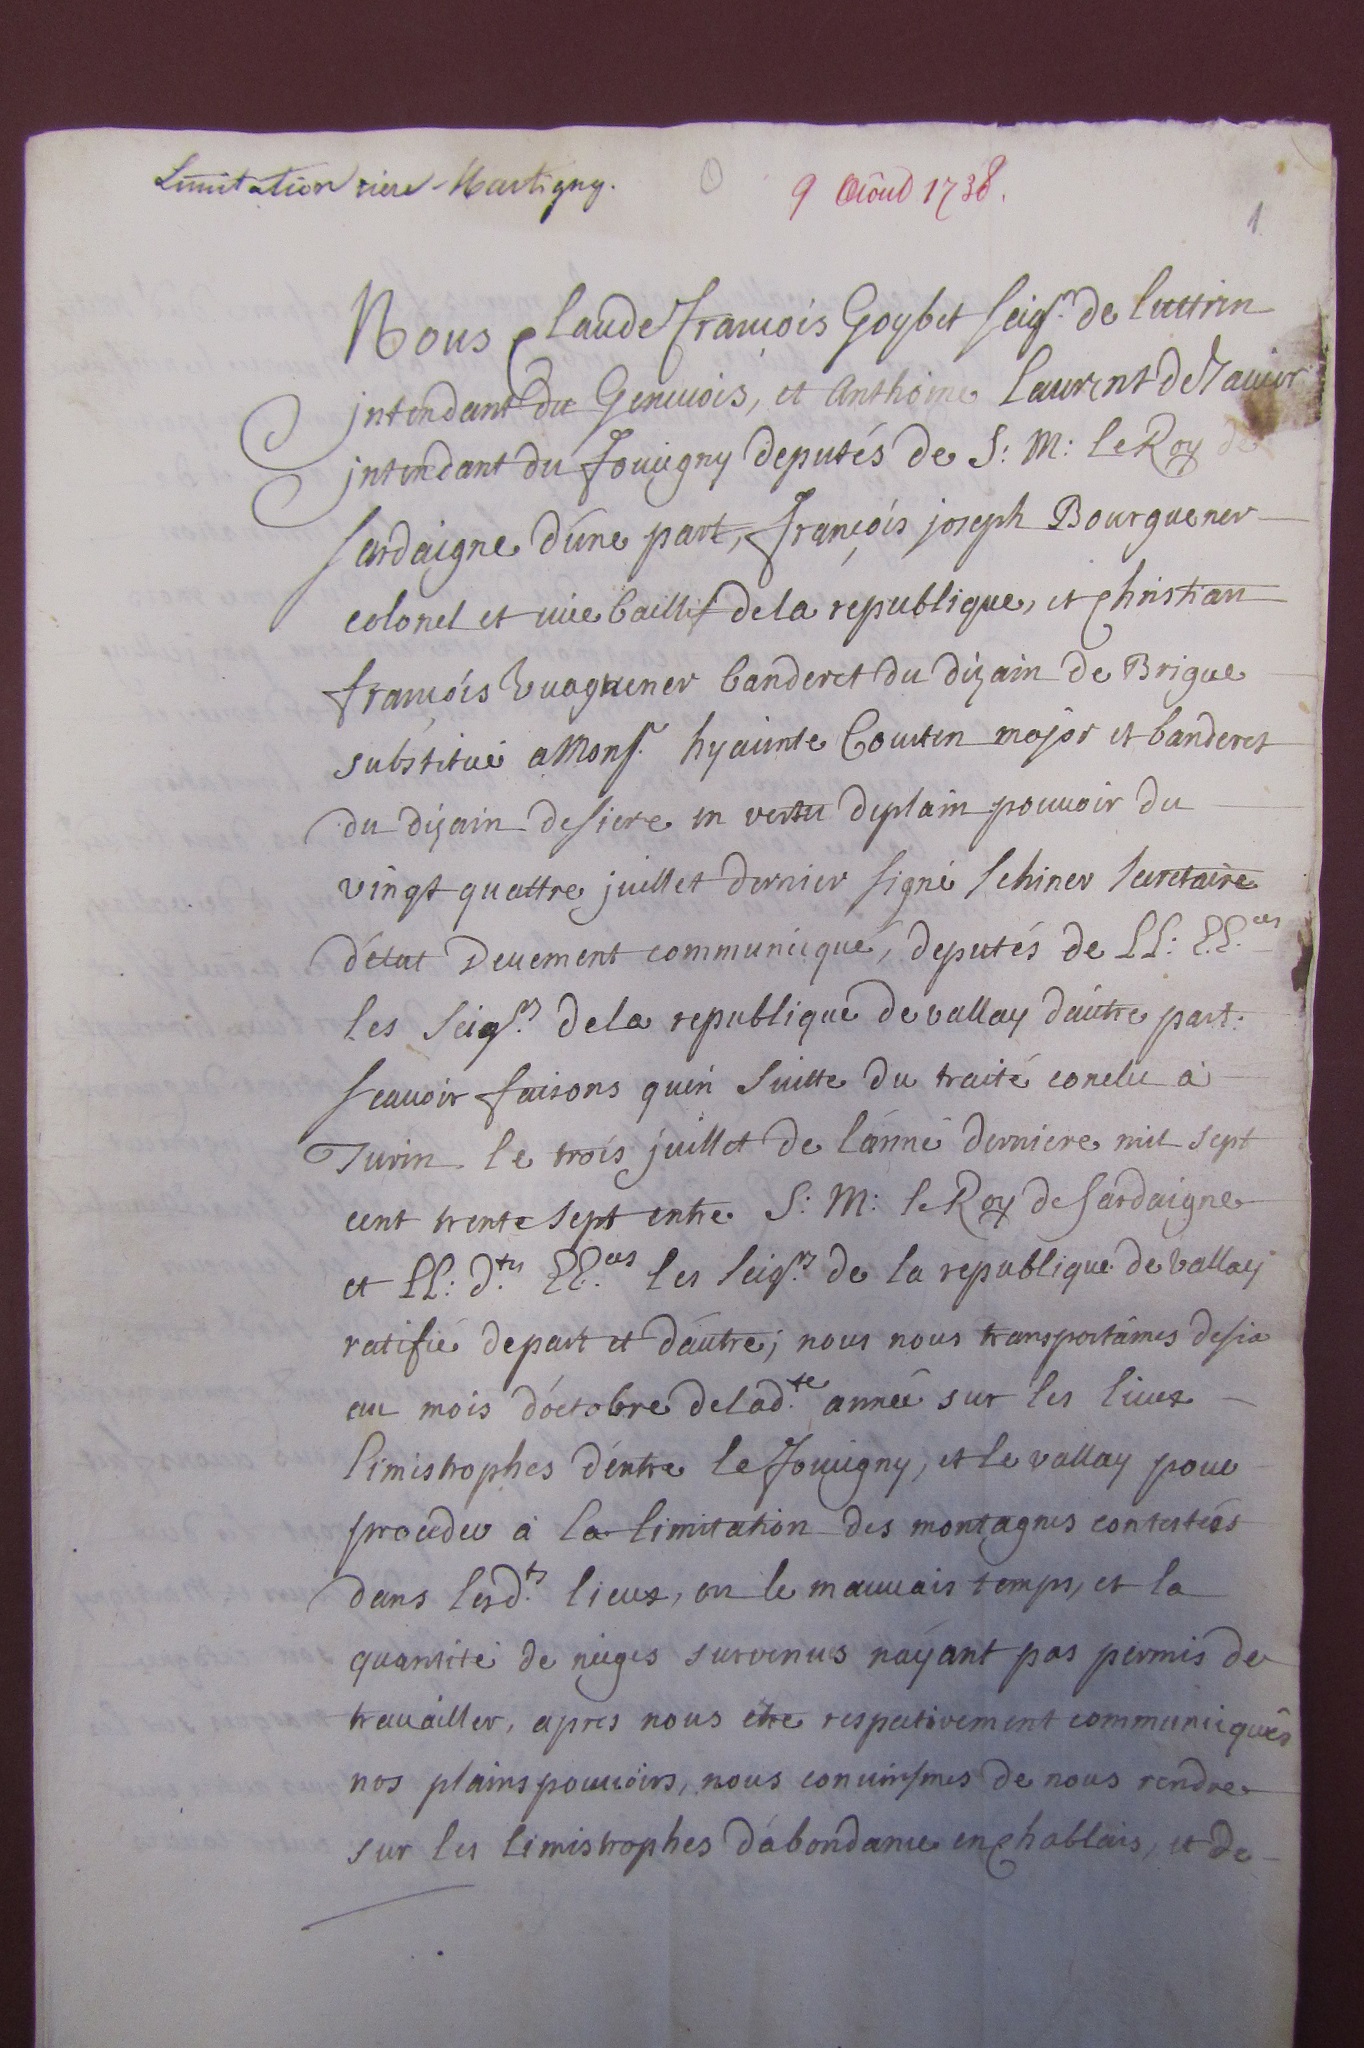 Limitation riere Martigny.
9 Aoûd 1738.
1
Nous Claude François Goybet seigr. de lutrin
jntendant du Genevois, et Anthoine Laurent de
jntendant du foucigny deputés de S: M: le Roy de
sardaigne d'une part, françois joseph Bourguener
colonel et vice baillif de la republique, et christian
françois Vuaguener banderet du dizain de Brigue
substitué a Monsr. hyacinte Courten major et banderet
du dizain de siere en vertu de plain pouvoir du
vingt quattre juillet dernier signé schiner secretaire
d'etat Deuement communicqué, deputés de LL: E.E.ces
les seigrs. de la republique de vallay d'autre part.
scavoir faisons qu'en suitte du traité conclu à
Turin le trois juillet de l'anné derniere mil sept
cent trente sept entre S: M: le Roy de sardaigne
et LL: d.tes EE.ces les seigrs. de la republique de vallay
ratifié de part et d'autre; nous nous transportâmes desia
au mois d'octobre de lad.te année sur les lieux
limistrophes d'entre le foucigny, et le vallay pour
proceder a la limitation des montagnes contestées
dans lesd.ts lieux, ou le mauuais temps, et la
quantité de neiges survenues n'ayant pas permis de
trauailler, apres nous etre respectivement communicqués
nos plains pouuoirs, nous convinsmes de nous rendre
sur les limistrophes d'abondance en chablais, et de